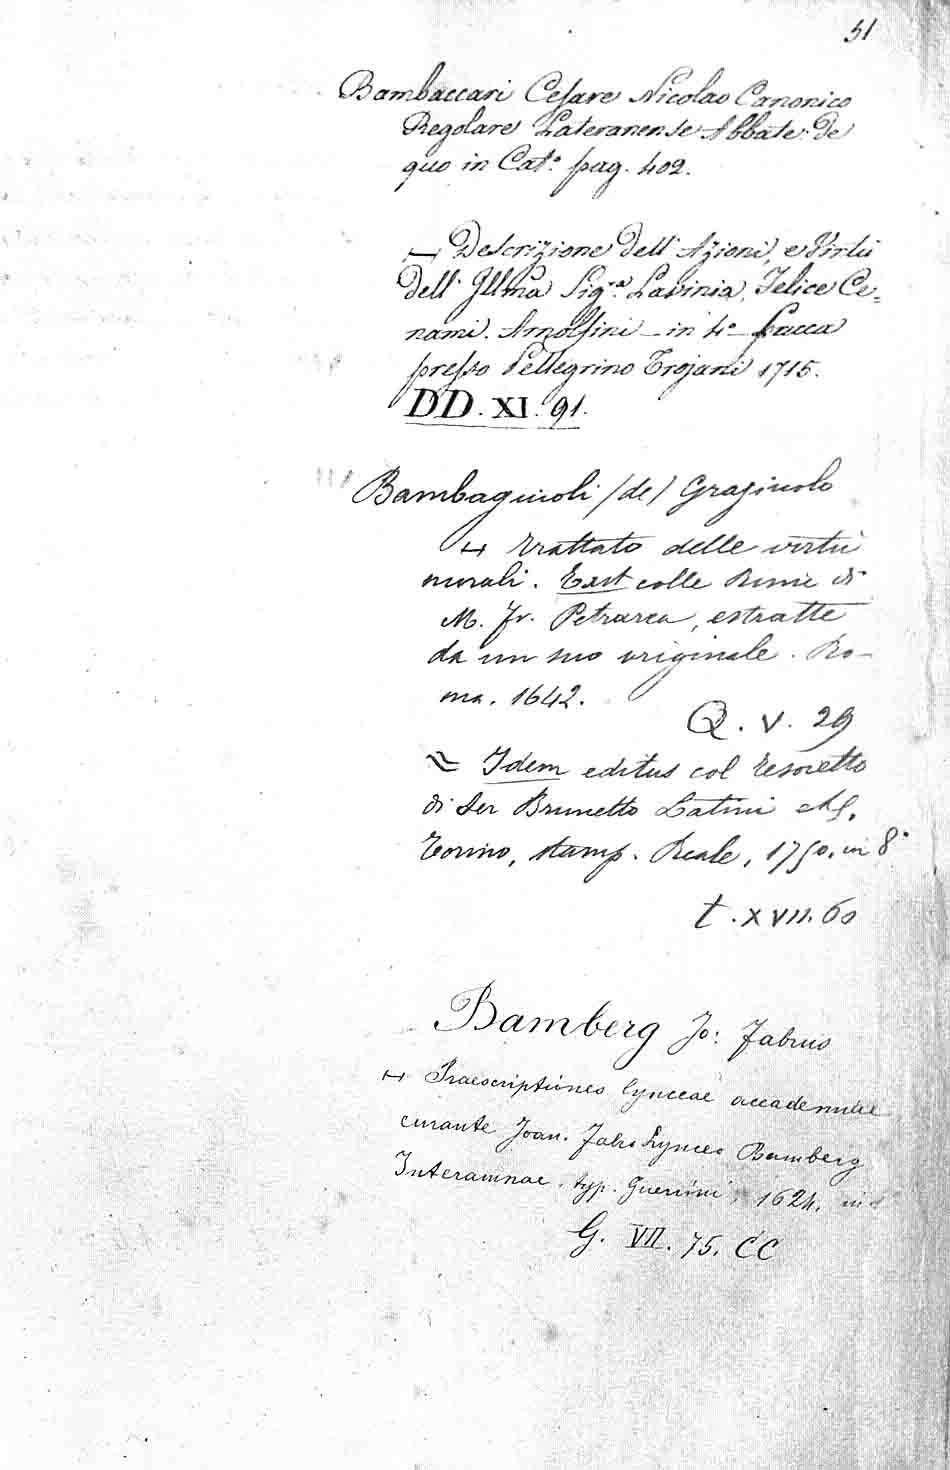 51
Bambaccari Cesare Nicolao Canonico
Regolare Lateranense Abbate. De
quo in Cat.º pag. 402.
— Descrizione dell' Azioni, e Virtù
dell' Illma Sig.ª Lavinia, Felice Ce=
nami. Arnolfini — in 4º Lucca
presso Pellegrino Trojani 1715.
DD. XI. 91.
Bambagiuoli (de) Graziuolo
Trattato delle virtù
morali. Exst colle Rime di
M. Fr. Petrarca, estratte
da un suo originale. Ro-
ma. 1642.
Q. V. 29
Idem editus col Tesoretto
di Ser Brunetto Latini
Torino, stamp. Reale, 1750. in 8º
t. XVII. 60
Bamberg Jo: Fabrus
Praescriptiones lynceae accademiae
curante Joan. Fabro Lynceo Bamberg
Interamnae, typ. Guerrini, 1624. in
G. VII. 75. CC